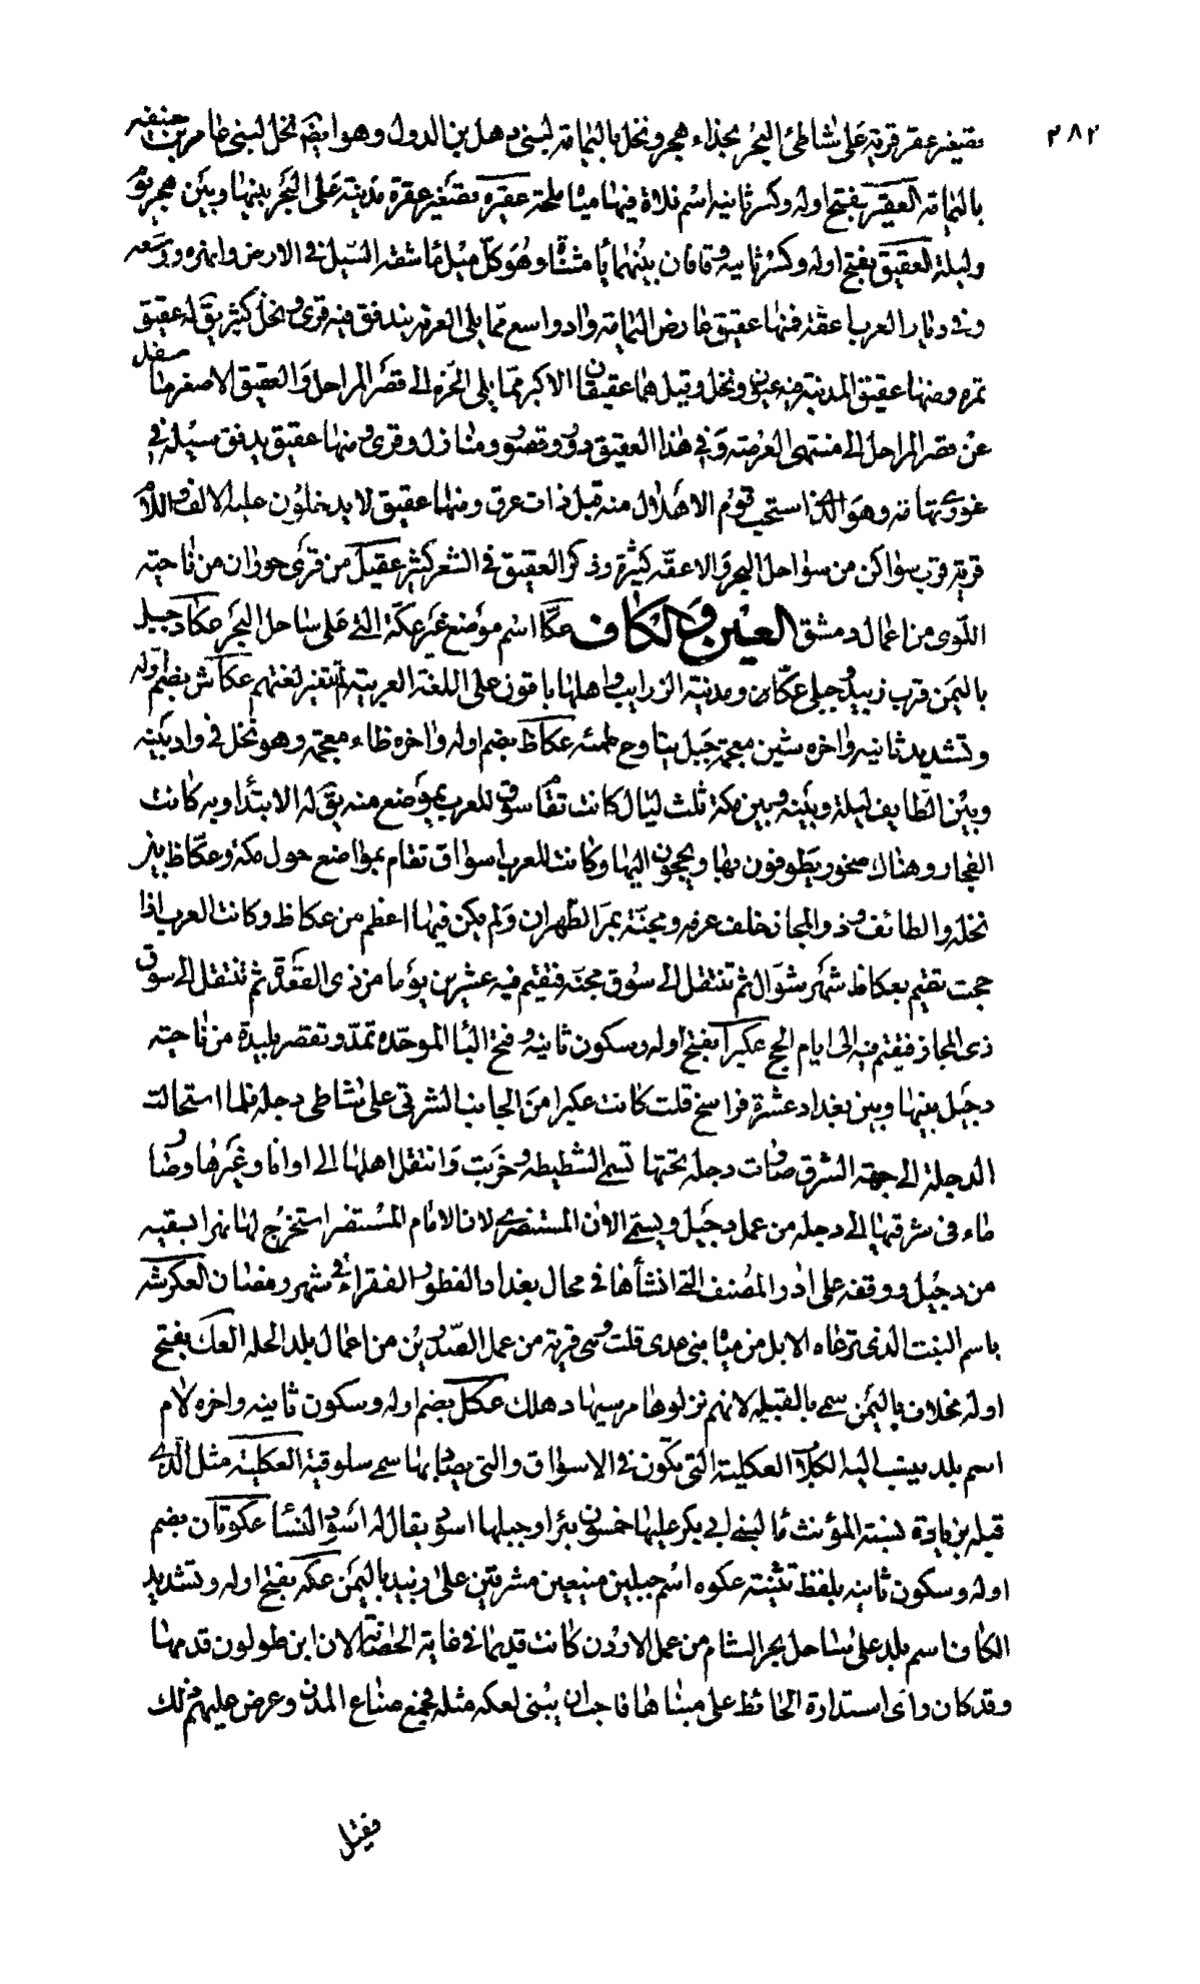 ٢٨٢
تصغير عقر قرية على شاطئ البحر بحذاء هجر ونخل باليمامة لبنى ذهل بن الدول وهو ايضا نخل لبنى عامر بن حنيفه
باليمامة العقير بفتح اوله وكسر ثانيه اسم فلاة فيها مياه ملحة عقيره تصغير عقرة مدينة على البحر بينها وبين هجر يوم
وليلة العقيق بفتح اوله وكسر ثانيه وقافان بينهما يا مثناة وهو كل مسيل ما شقه السيل فى الارض وانهره ووسعه
وفى ديار العرب اعقة فمنها عقيق عارض اليمامة واد واسع مما يلى العرمه يتدفق فيه قرى ونخل كثير يق له عقيق
تمره ومنها عقيق المدينة فيه عيون ونخل وقيل هما عقيقان الاكبر مما يلى الحره الى قصر المراجل والعقيق الاصغر ما سفل
عن قصر المراجل الى منتهى العرصه وفى هذا العقيق دور وقصور ومنازل وقرى ومنها عقيق يدفق سيله فى
غورى تهامه وهو الذى استحب قوم الاهلال منه قبل ذات عرق ومنها عقيق لا يدخلون عليه الالف واللام
قرية قرب سواكن من سواحل البحر والاعقه كثيرة وذكر العقيق فى الشعر كثير عقيل من قرى حوران من ناحية
اللوى من اعمال دمشق العين والكاف عكا اسم موضع غير عكة التى على ساحل البحر عكاد جبل
باليمن قرب زبيد وجبلى عكاد ومدينة الزرايب واهلها باقون على اللغة العربية لم تتغير لغتهم عكاش بضم اوله
وتشديد ثانيه واخره شين معجمة جبل يناوح طميه عكاظ بضم اوله واخره ظاء معجمة وهو نخل فى واد بينه
وبين الطايف ليلة وبينه وبين مكة ثلث ليال كانت تقام سوق للعرب بموضع منه يق له الابتداء وبه كانت
الفجار وهناك صخور يطوفون بها ويحجون اليها وكانت للعرب اسواق تقام بمواضع حول مكة وعكاظ بين
نخله والطائف وذو المجاز خلف عرفه ومجنة بمر الظهران ولم يكن فيها اعظم من عكاظ وكانت العرب اذا
حجت تقيم بعكاظ شهر شوال ثم تنتقل الى سوق مجنه فتقيم فيه عشرين يوما من ذى القعدة ثم تنتقل الى سوق
ذى المجاز فتقيم فيه الى ايام الحج عكبرا بفتح اوله وسكون ثانيه وفتح البا الموحده تمد وتقصر بليدة من ناحية
دجيل بينها وبين بغداد عشرة فراسخ قلت كانت عكبرا من الجانب الشرقى على شاطى دجله فلما استحالت
الدجلة الى جهة الشرق صارت دجلة تحتها تسمى الشطيطه وخربت وانتقل اهلها الى اوانا وغيرها وصار
ماء فى شرقيها الى دجله من عمل دجيل ويسمى الان المستنصرى لان الامام المستنصر استخرج لها نهرا يسقيه
من دجيل ووقفه على ادر المضيف التى انشأها فى محال بغداد لفطور الفقراء فى شهر رمضان العكرشه
باسم النبت الذى ترعاه الابل من مياه بنى عدى قلت وهى قرية من عمل الصدرين من اعمال بلد الحله العك بفتح
اوله مخلاف باليمن سمى بالقبيله لانهم نزلوها مرسيها دهلك عكل بضم اوله وسكون ثانيه واخره لام
اسم بلد ينسب اليه الكلاب العكلية التى تكون فى الاسواق والتى يصاد بها سمى سلوقية العكلية مثل الذى
قبله بزيادة نسبة المؤنث ما لبنى ابى بكر عليها خمسون بئرا وجبلها اسود يقال له اسود النسا عكوتان بضم
اوله وسكون ثانيه بلفظ تثنية عكوه اسم جبلين منيعين مشرفين على زبيد باليمن عكه بفتح اوله وتشديد
الكاف اسم بلد على ساحل بحر الشام من عمل الاردن كانت قديما فى غاية الحصانة لان ابن طولون قدمها
وقد كان راى استدارة الحائط على ميناها فاحب ان يبنى لعكه مثله فجمع صناع المدن وعرض عليهم ذلك
فقيل